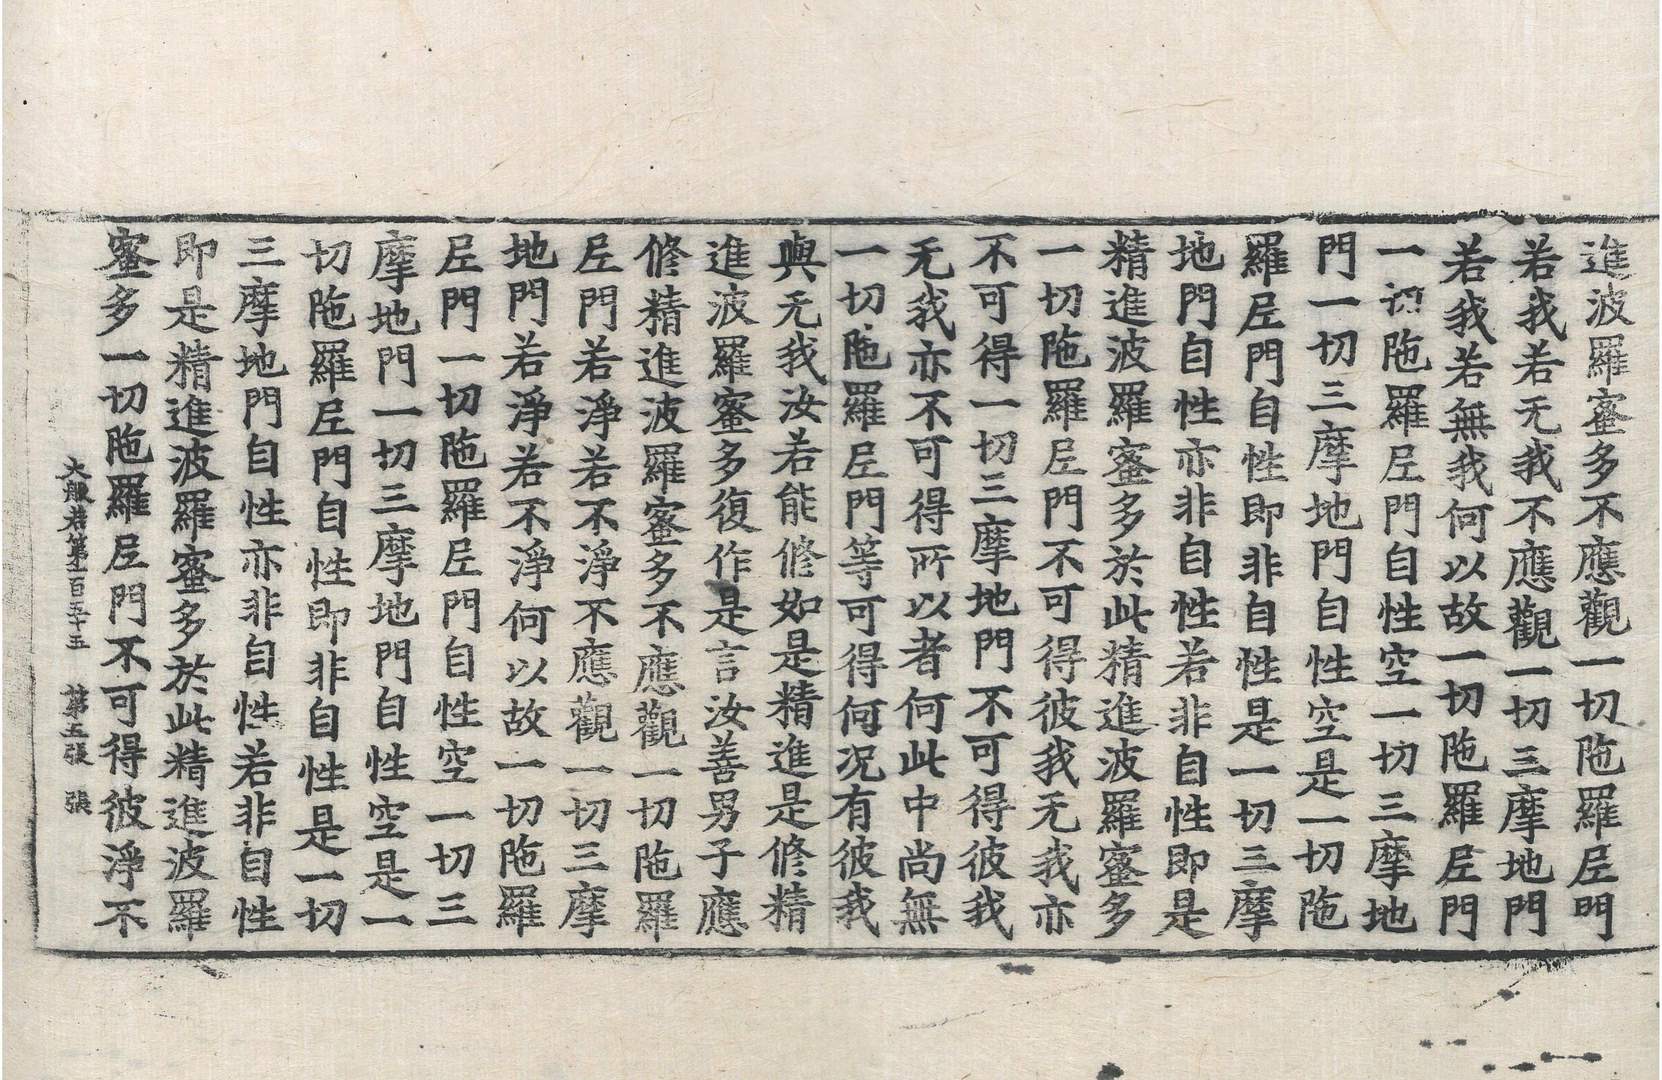 進波羅蜜多不應觀一切陁羅𡰱門
若我若无我不應觀一切三摩地門
若我若無我何以故一切陁羅𡰱門
一切陁羅𡰱門自性空一切三摩地
門一切三摩地門自性空是一切陁
羅𡰱門自性即非自性是一切三摩
地門自性亦非自性若非自性即是
精進波羅蜜多於此精進波羅蜜多
一切陁羅𡰱門不可得彼我无我亦
不可得一切三摩地門不可得彼我
无我亦不可得所以者何此中尚無
一切陁羅𡰱門等可得何況有彼我
與无我汝若能修如是精進是修精
進波羅蜜多復作是言汝善男子應
修精進波羅蜜多不應觀一切陁羅
𡰱門若淨若不淨不應觀一切三摩
地門若淨若不淨何以故一切陁羅
𡰱門一切陁羅𡰱門自性空一切三
摩地門一切三摩地門自性空是一
切陁羅𡰱門自性即非自性是一切
三摩地門自性亦非自性若非自性
即是精進波羅蜜多於此精進波羅
蜜多一切陁羅𡰱門不可得彼淨不
大般若第一百五十五 第五張 張